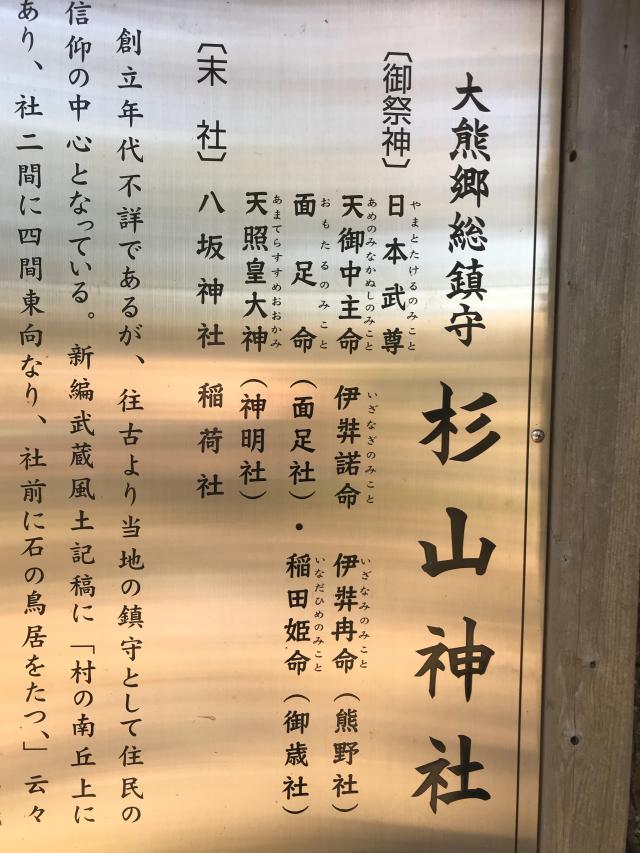 大熊郷総鎮守 杉山神社
〔御祭神〕日本武尊
やまとたけるのみこと
天御中主命 伊弉諾命 伊弉冉命（熊野社）
あめのみなかぬしのみこと いざなぎのみこと いざなみのみこと
面足命（面足社）・稲田姫命（御歳社）
おもたるのみこと いなだひめのみこと
天照皇大神（神明社）
あまてらすすめおおかみ
〔末社〕八坂神社 稲荷社
創立年代不詳であるが、往古より当地の鎮守として住民の
信仰の中心となっている。新編武蔵風土記稿に「村の南丘上に
あり、社二間に四間東向なり、社前に石の鳥居をたつ、」云々